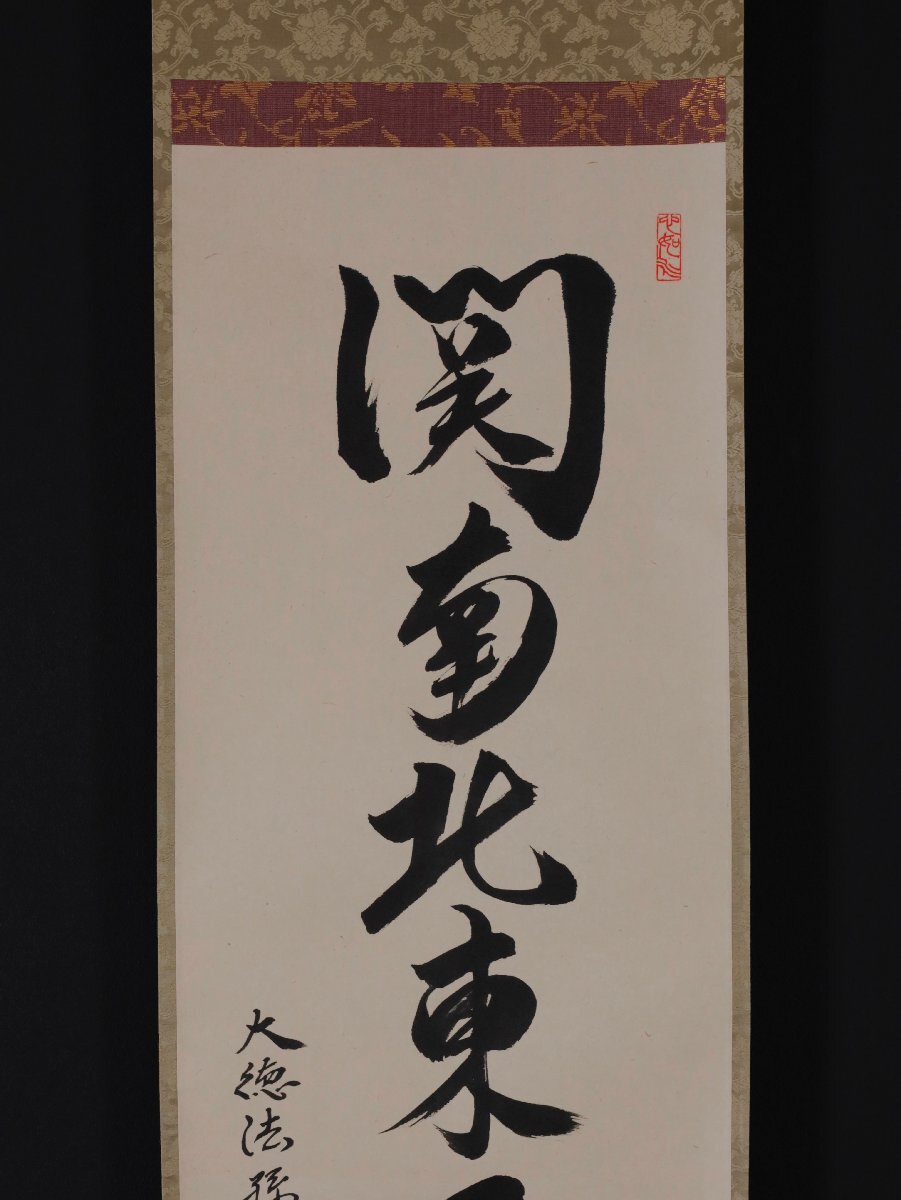 関南北東
大徳法孫